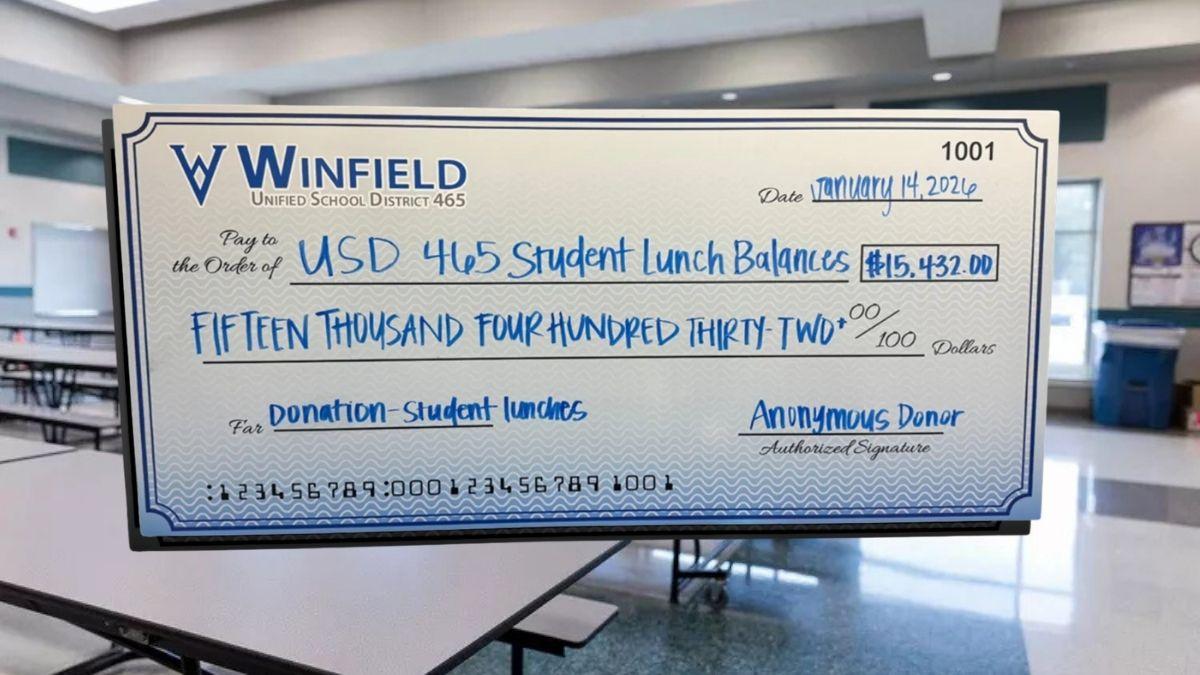 WINFIELD
UNIFIED SCHOOL DISTRICT 465
1001
Date January 14, 2026
Pay to
the Order of USD 465 Student Lunch Balances $15,432.00
FIFTEEN THOUSAND FOUR HUNDRED THIRTY-TWO + 00/100 Dollars
For Donation - Student lunches
Anonymous Donor
Authorized Signature
:123456789:000123456789 1001